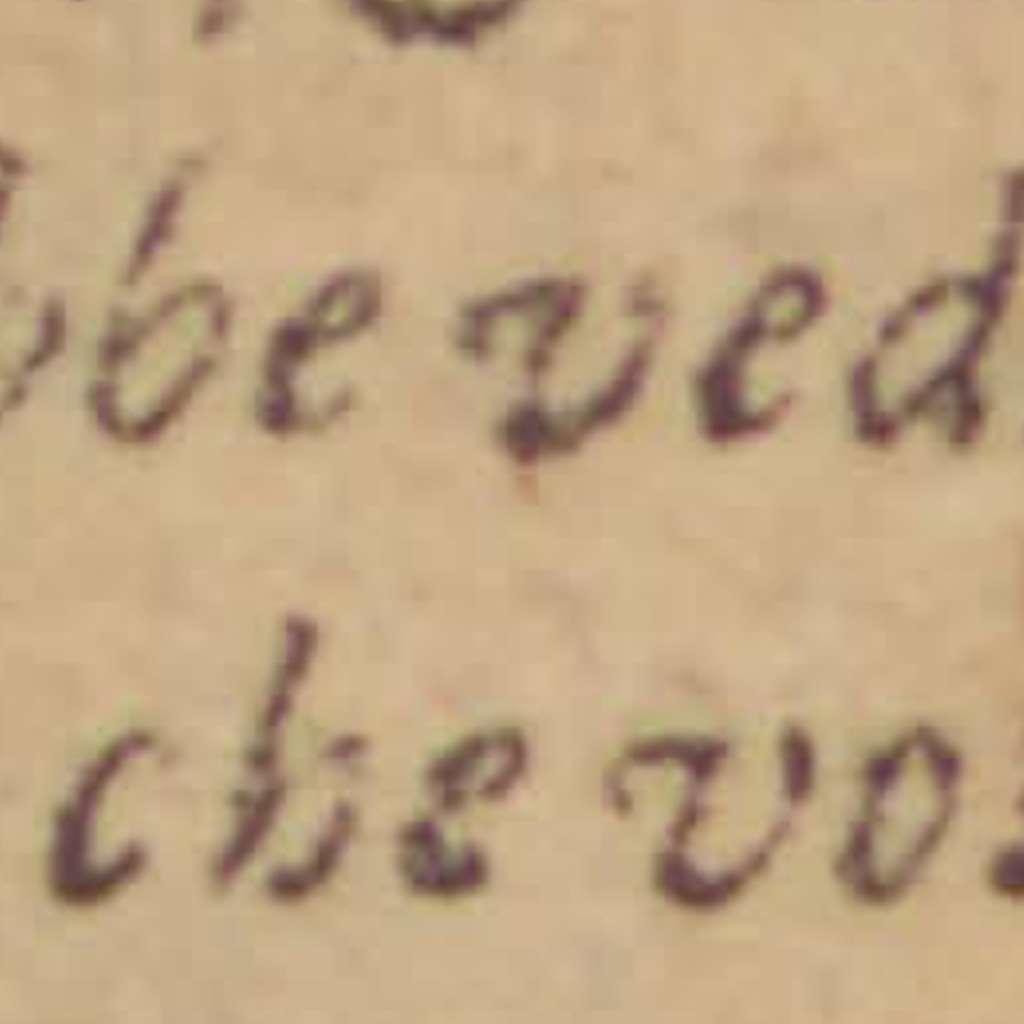 be ved
che vo